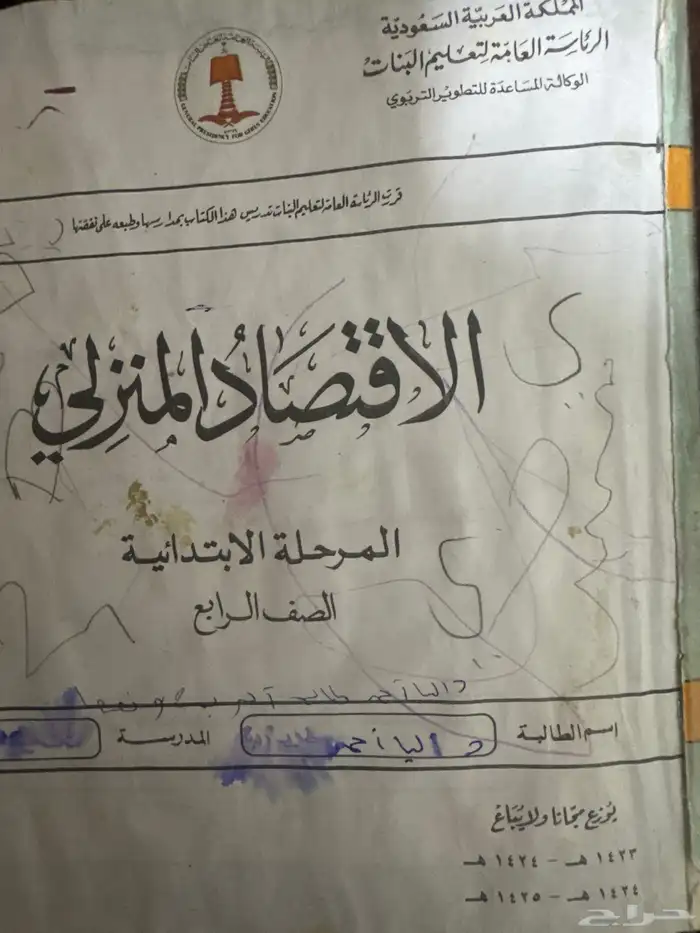 المملكة العربية السعودية
الرئاسة العامة لتعليم البنات
الوكالة المساعدة للتطوير التربوي
GENERAL PRESIDENCY FOR GIRLS EDUCATION
قررت الرئاسة العامة لتعليم البنات تدريس هذا الكتاب بمدارسها وطبعه على نفقتها
الاقتصاد المنزلي
المرحلة الابتدائية
الصف الرابع
داليا أحمد
اسم الطالبة داليا أحمد المدرسة
يوزع مجانا ولا يباع
١٤٢٣ هـ - ١٤٢٤ هـ
١٤٢٤ هـ - ١٤٢٥ هـ
حراج